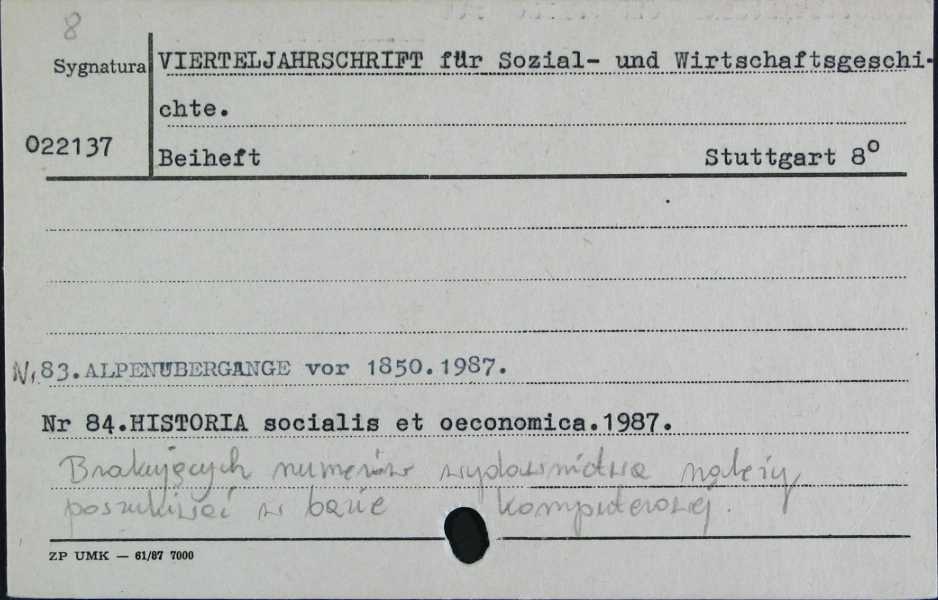 8
Sygnatura VIERTELJAHRSCHRIFT für Sozial- und Wirtschaftsgeschi-
chte.
022137 Beiheft Stuttgart 8°
Nr 83.ALPENÜBERGÄNGE vor 1850.1987.
Nr 84.HISTORIA socialis et oeconomica.1987.
Brakujących numerów wydawnictwa należy
poszukiwać w bazie komputerowej.
ZP UMK — 61/87 7000